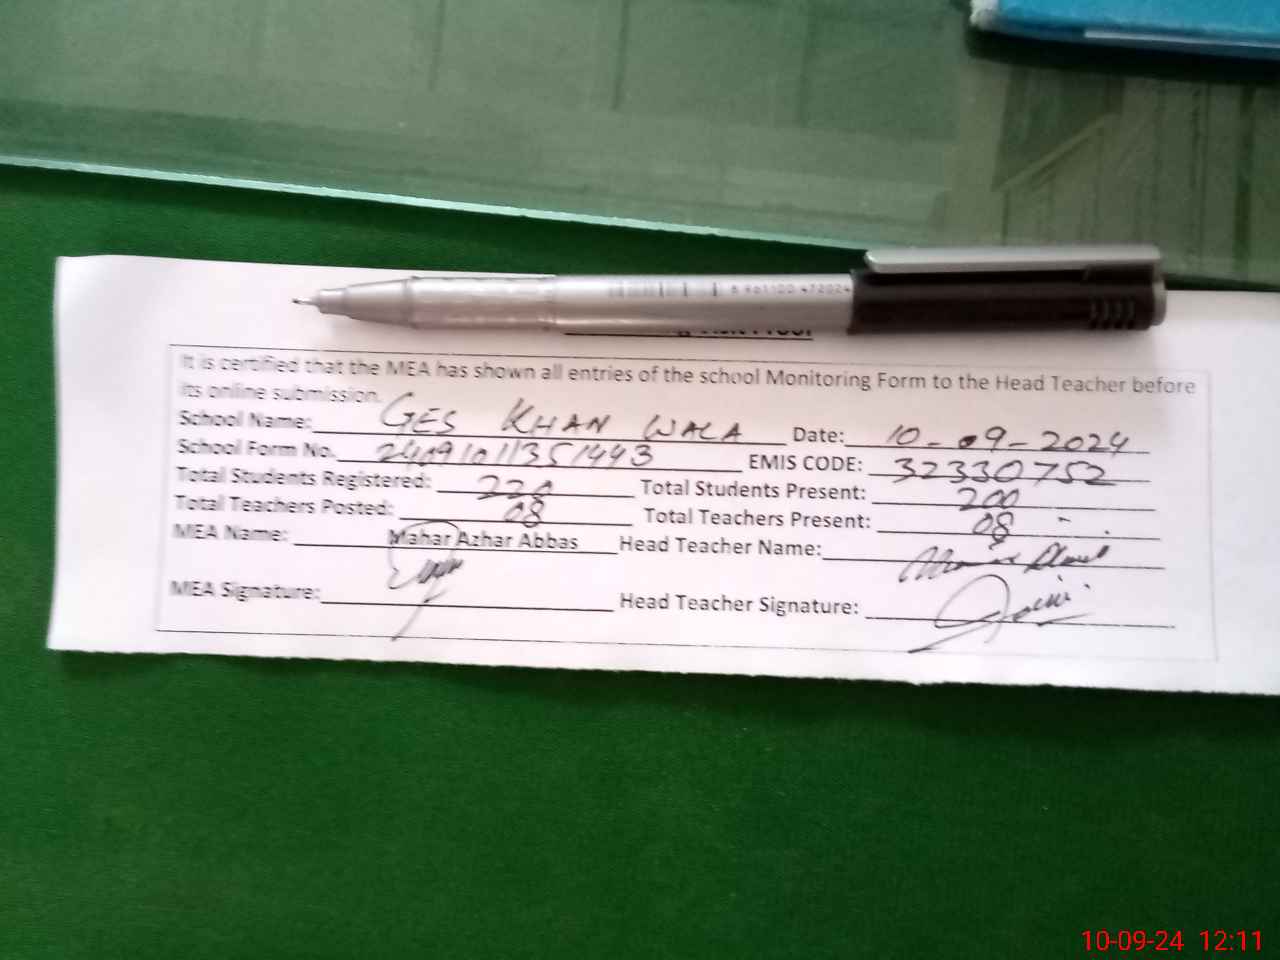 8 961100 472024
It is certified that the MEA has shown all entries of the school Monitoring Form to the Head Teacher before
its online submission.
School Name: GES KHAN WALA Date: 10-09-2024
School Form No. 2409101135 1443 EMIS CODE: 32330752
Total Students Registered: 220 Total Students Present: 200
Total Teachers Posted: 08 Total Teachers Present: 08
MEA Name: Mahar Azhar Abbas Head Teacher Name:
MEA Signature: Head Teacher Signature:
10-09-24 12:11